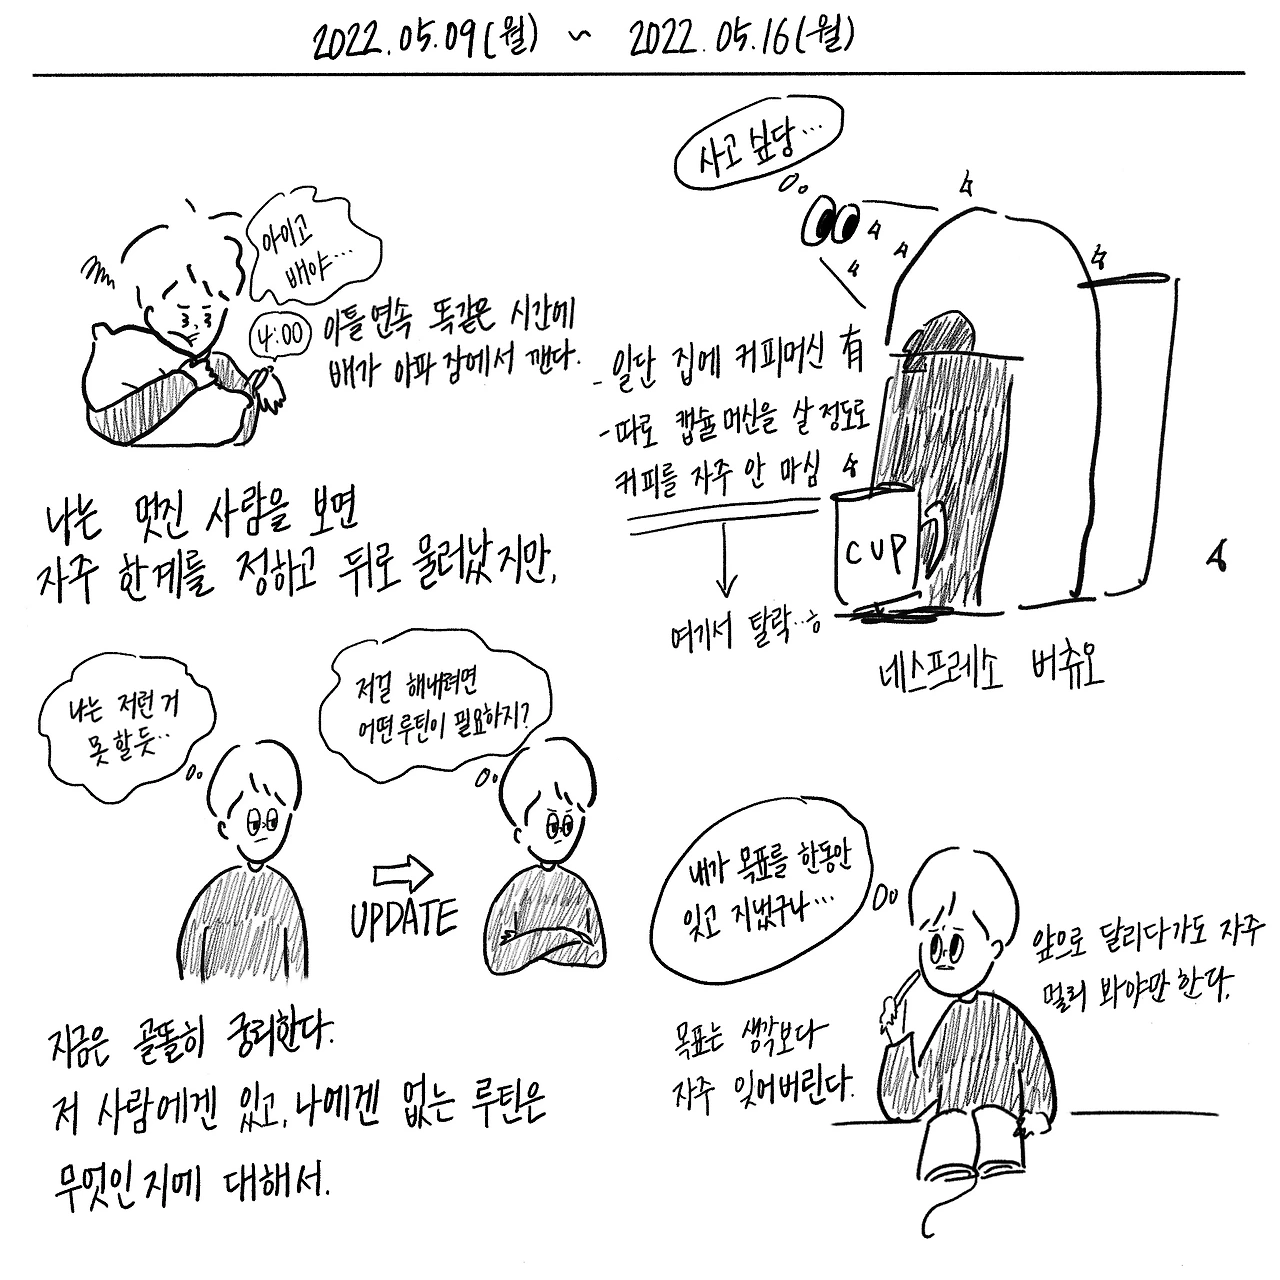 2022.05.09(월) ~ 2022.05.16(월)
아이고
배야...
4:00
이틀연속 똑같은 시간에
배가 아파 잠에서 깬다.
사고 싶당...
- 일단 집에 커피머신 有
- 따로 캡슐머신을 살 정도로
커피를 자주 안 마심
여기서 탈락..ㅎ
CUP
네스프레소 버츄오
나는 멋진 사람을 보면
자주 한계를 정하고 뒤로 물러났지만,
나는 저런 거
못 할듯..
UPDATE
저걸 해내려면
어떤 루틴이 필요하지?
지금은 골똘히 궁리한다.
저 사람에겐 있고, 나에겐 없는 루틴은
무엇인지에 대해서.
내가 목표를 한동안
잊고 지냈구나...
목표는 생각보다
자주 잊어버린다.
앞으로 달리다가도 자주
멀리 봐야만 한다.